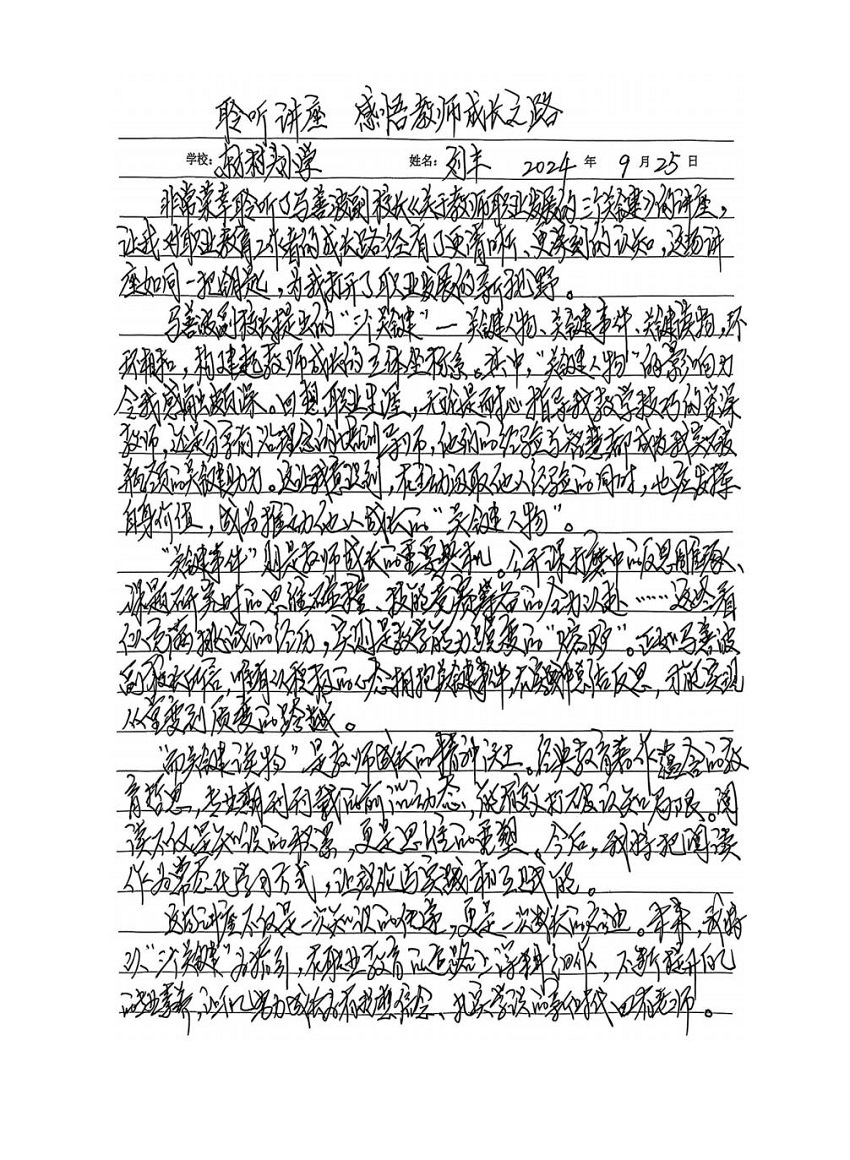 聆听讲座 感悟教师成长之路
学校: 小学 姓名: 刘丰 2024 年 9 月 25 日
非常荣幸聆听了马善波副校长《关于教师职业发展的三个关键》的讲座,
让我对职业教育工作者的成长路径有了更清晰、更深刻的认知,这场讲
座如同一把钥匙,为我打开了职业发展的新视野。
马善波副校长提出的“三个关键”—关键人物、关键事件、关键读物,环
环相扣,构建起教师成长的立体坐标系。其中,“关键人物”的影响力
令我感触颇深。回想职业生涯,无论是耐心指导我教学技巧的资深
教师,还是分享前沿理念的培训导师,他们的经验与智慧都成为我突破
瓶颈的关键助力。这让我意识到,在主动汲取他人经验的同时,也应发挥
自身价值,成为推动他人成长的“关键人物”。
“关键事件”则是教师成长的重要契机。公开课打磨中的反思
课题研究时的思维碰撞、技能竞赛筹备的全力以赴……这些看
似充满挑战的经历,实则是教学能力蜕变的“ ”。正如马善波
副校长所言,唯有以积极的心态拥抱关键事件,在 中总结反思,才能实现
从量变到质变的跨越。
“而关键读物”是教师成长的精神沃土。经典教育著作蕴含的教
育哲思,专业期刊刊载的前沿动态,能有效打破认知局限。阅
读不仅是知识的积累,更是思维的重塑。今后,我将把阅读
作为常态化学习方式,让理论与实践相互赋能。
这场讲座不仅是一次知识的传递,更是一次成长的启迪。未来,我将
以“三个关键”为指引,在职业教育的道路上深耕细作,不断提升自己
的 ,让自己努力成长为有理想信念、扎实学识的新时代 老师。